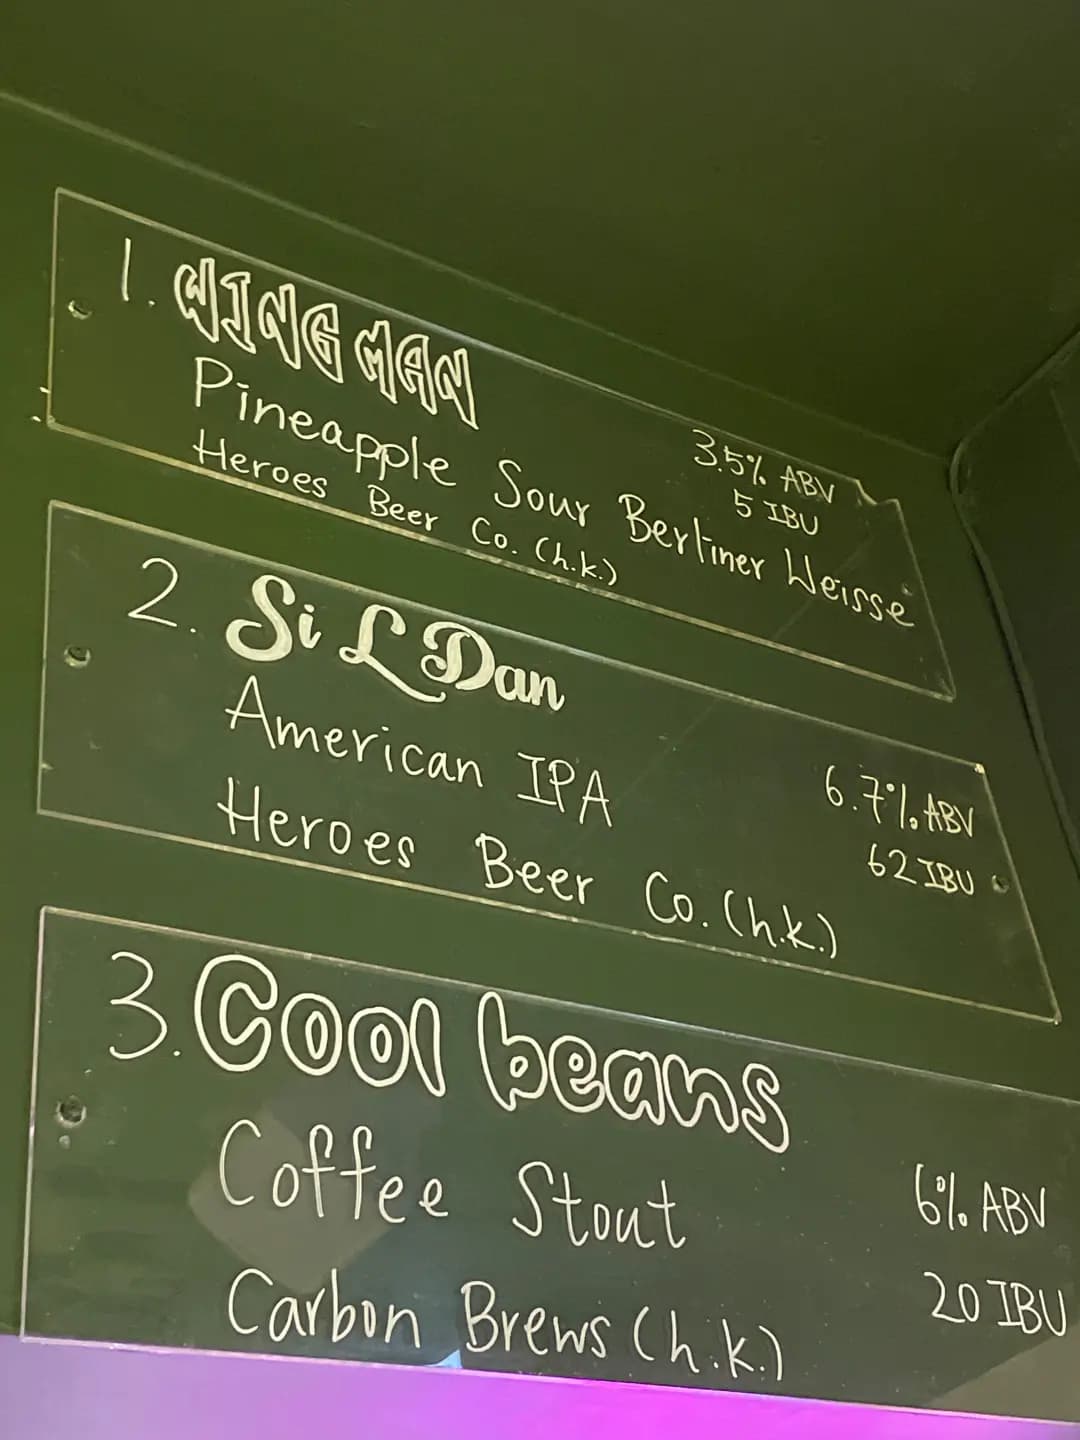 1. WINGMAN
Pineapple Sour Berliner Weisse
3.5% ABV
5 IBU
Heroes Beer Co. (h.k.)
2. Si L Dan
American IPA
6.7% ABV
62 IBU
Heroes Beer Co. (h.k.)
3. Cool beans
Coffee Stout
6% ABV
20 IBU
Carbon Brews (h.k.)